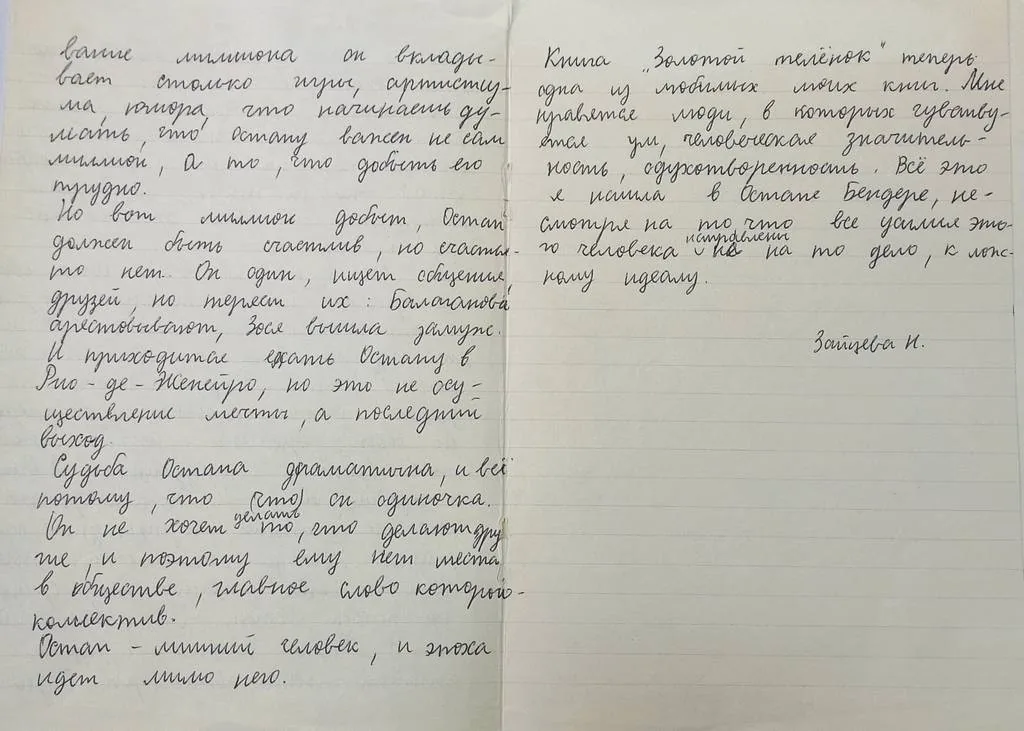 вание миллиона он вклады-
вает столько игры, артистиз-
ма, юмора, что начинаешь ду-
мать, что Остапу важен не сам
миллион, а то, что добыть его
трудно.
Но вот миллион добыт, Остап
должен быть счастлив, но счастья-
то нет. Он один, ищет общения,
друзей, но теряет их: Балаганова
арестовывают, Зося вышла замуж.
И приходится ехать Остапу в
Рио-де-Женейро, но это не осу-
ществление мечты, а последний
выход.
Судьба Остапа драматична, и всё
потому, что (что) он одиночка.
Он не хочет делать то, что делают дру
гие, и поэтому ему нет места
в обществе, главное слово которой-
коллектив.
Остап - лишний человек, и эпоха
идет мимо него.
Книга "Золотой телёнок" теперь
одна из любимых моих книг. Мне
нравятся люди, в которых чувству-
ется ум, человеческая значитель-
ность, одухотворенность. Всё это
я нашла в Остапе Бендере, не-
смотря на то, что все усилия это-
го человека направлены не на то дело, к лож-
ному идеалу.
Зайцева Н.